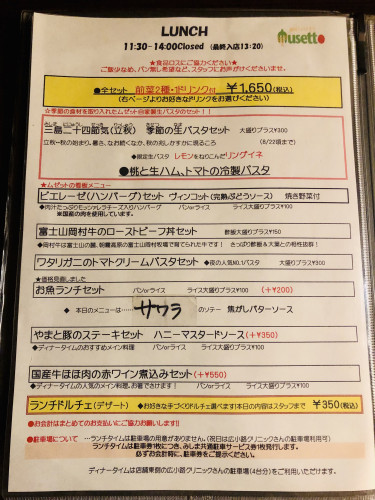 LUNCH
11:30-14:00Closed (最終入店13:20)
musetto
★食品ロスにご協力ください★
ご飯少なめ、パン無し希望など、スタッフにお声がけくださいませ。
●全セット 前菜2種・1ドリンク付 ￥1,650(税込)
(右ページよりお好きなドリンクをお選びください)
☆季節の食材を取り入れたムゼット自家製生パスタのセット!!
三島二十四節気(立秋) 季節の生パスタセット 大盛りプラス¥300
立秋～秋の始まり。暑さ、なお続くなか、秋の兆しかすかに現るころ (8/22頃まで)
◆限定生パスタ レモンをねりこんだリングイネ
●桃と生ハム、トマトの冷製パスタ
★ムゼットの看板メニュー
ピエレーゼ(ハンバーグ)セット ヴィンコット(完熟ぶどうソース) 焼き野菜付
◆肉汁たっぷりモッツァレラチーズ入りハンバーグ パンorライス ライス大盛りプラス¥100
※国産の肉を使用しています。
富士山岡村牛のローストビーフ丼セット 酢飯大盛りプラス¥150
◆岡村牛は富士山の麓、朝霧高原の富士山岡村牧場で育てられた牛です! さっぱり酢飯&大葉との相性抜群!
ワタリガニのトマトクリームパスタセット ◆夜の人気NO.1パスタ 大盛りプラス¥300
★価格見直しました
お魚ランチセット パンorライス ライス大盛りプラス¥100 (+¥200)
◆ 本日のメニューは…… サワラ のソテー 焦がしバターソース
やまと豚のステーキセット ハニーマスタードソース(+¥350)
◆ディナータイムのおすすめメイン料理 パンorライス ライス大盛りプラス¥100
国産牛ほほ肉の赤ワイン煮込みセット(+¥550)
◆ディナータイムの人気のメイン料理。お箸で召し上がれます! パンorライス ライス大盛りプラス¥100
ランチドルチェ(デザート) ◆お好きな手づくりドルチェ選べます!本日の内容はスタッフまで ￥350(税込)
●お会計はまとめてのお支払いにご協力お願いします!
●駐車場について ―ランチタイムは駐車場の用意がありません。(祝日は広小路クリニックさんの駐車場利用可)
ランチタイムは、駐車券1枚につき、みしま共通駐車サービス券1枚発行します。
必ずお会計時に、駐車券をご提示ください。
ディナータイムは店舗東側の広小路クリニックさんの駐車場(4台分)をご利用いただけます。